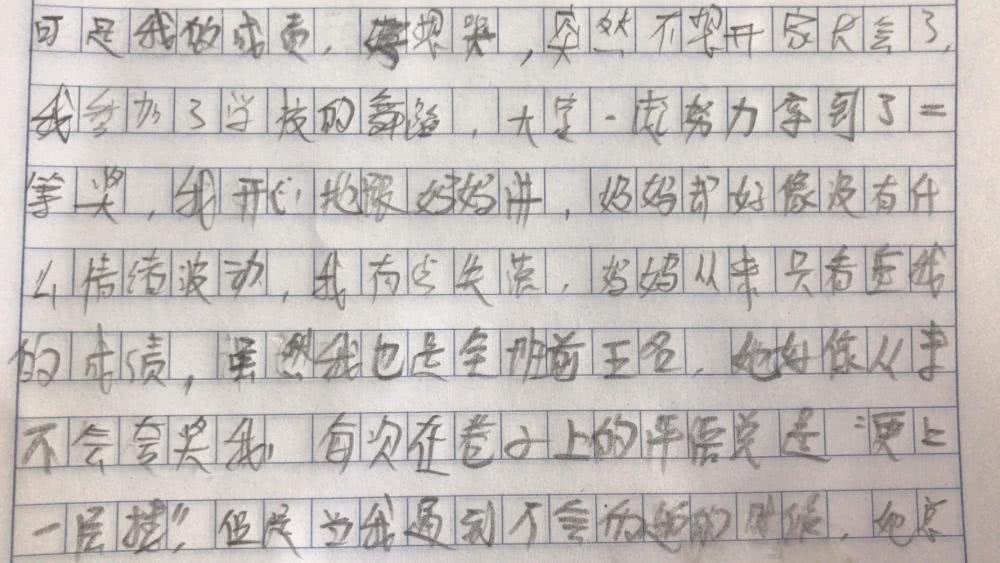 可是我的成责,想哭,突然不想开家长会了,
我参加了学校的舞蹈,大家一起努力拿到了二
等奖,我开心地跟妈妈讲,妈妈却好像没有什
么情绪波动,我有点失落,妈妈从来只看重我
的成绩,虽然我也是全班前五名,她好像从来
不会夸奖我,每次在卷子上的评语总是“更上
一层楼”,但是当我遇到不会的题的时候,她总